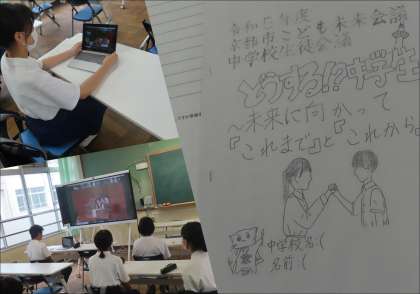 令和5年度
京都市こども未来会議
中学校生徒会議
どうする!?中学生
～未来に向かって
『これまで』と『これから』
中学校名:(
名前:(